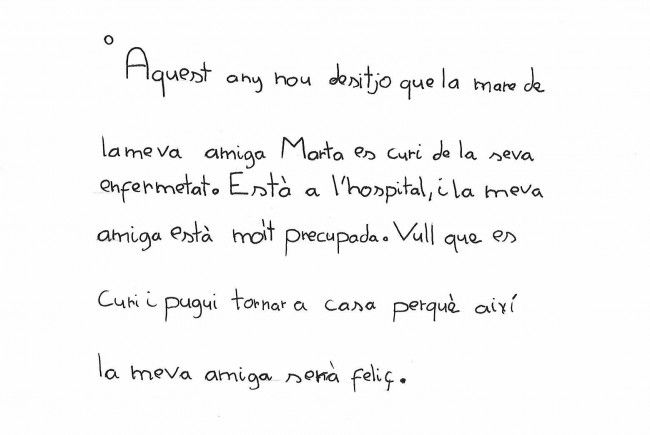 Aquest any nou desitjo que la mare de
la meva amiga Marta es curi de la seva
enfermetat. Està a l'hospital, i la meva
amiga està mòlt precupada. Vull que es
curi i pugui tornar a casa perquè així
la meva amiga serà feliç.